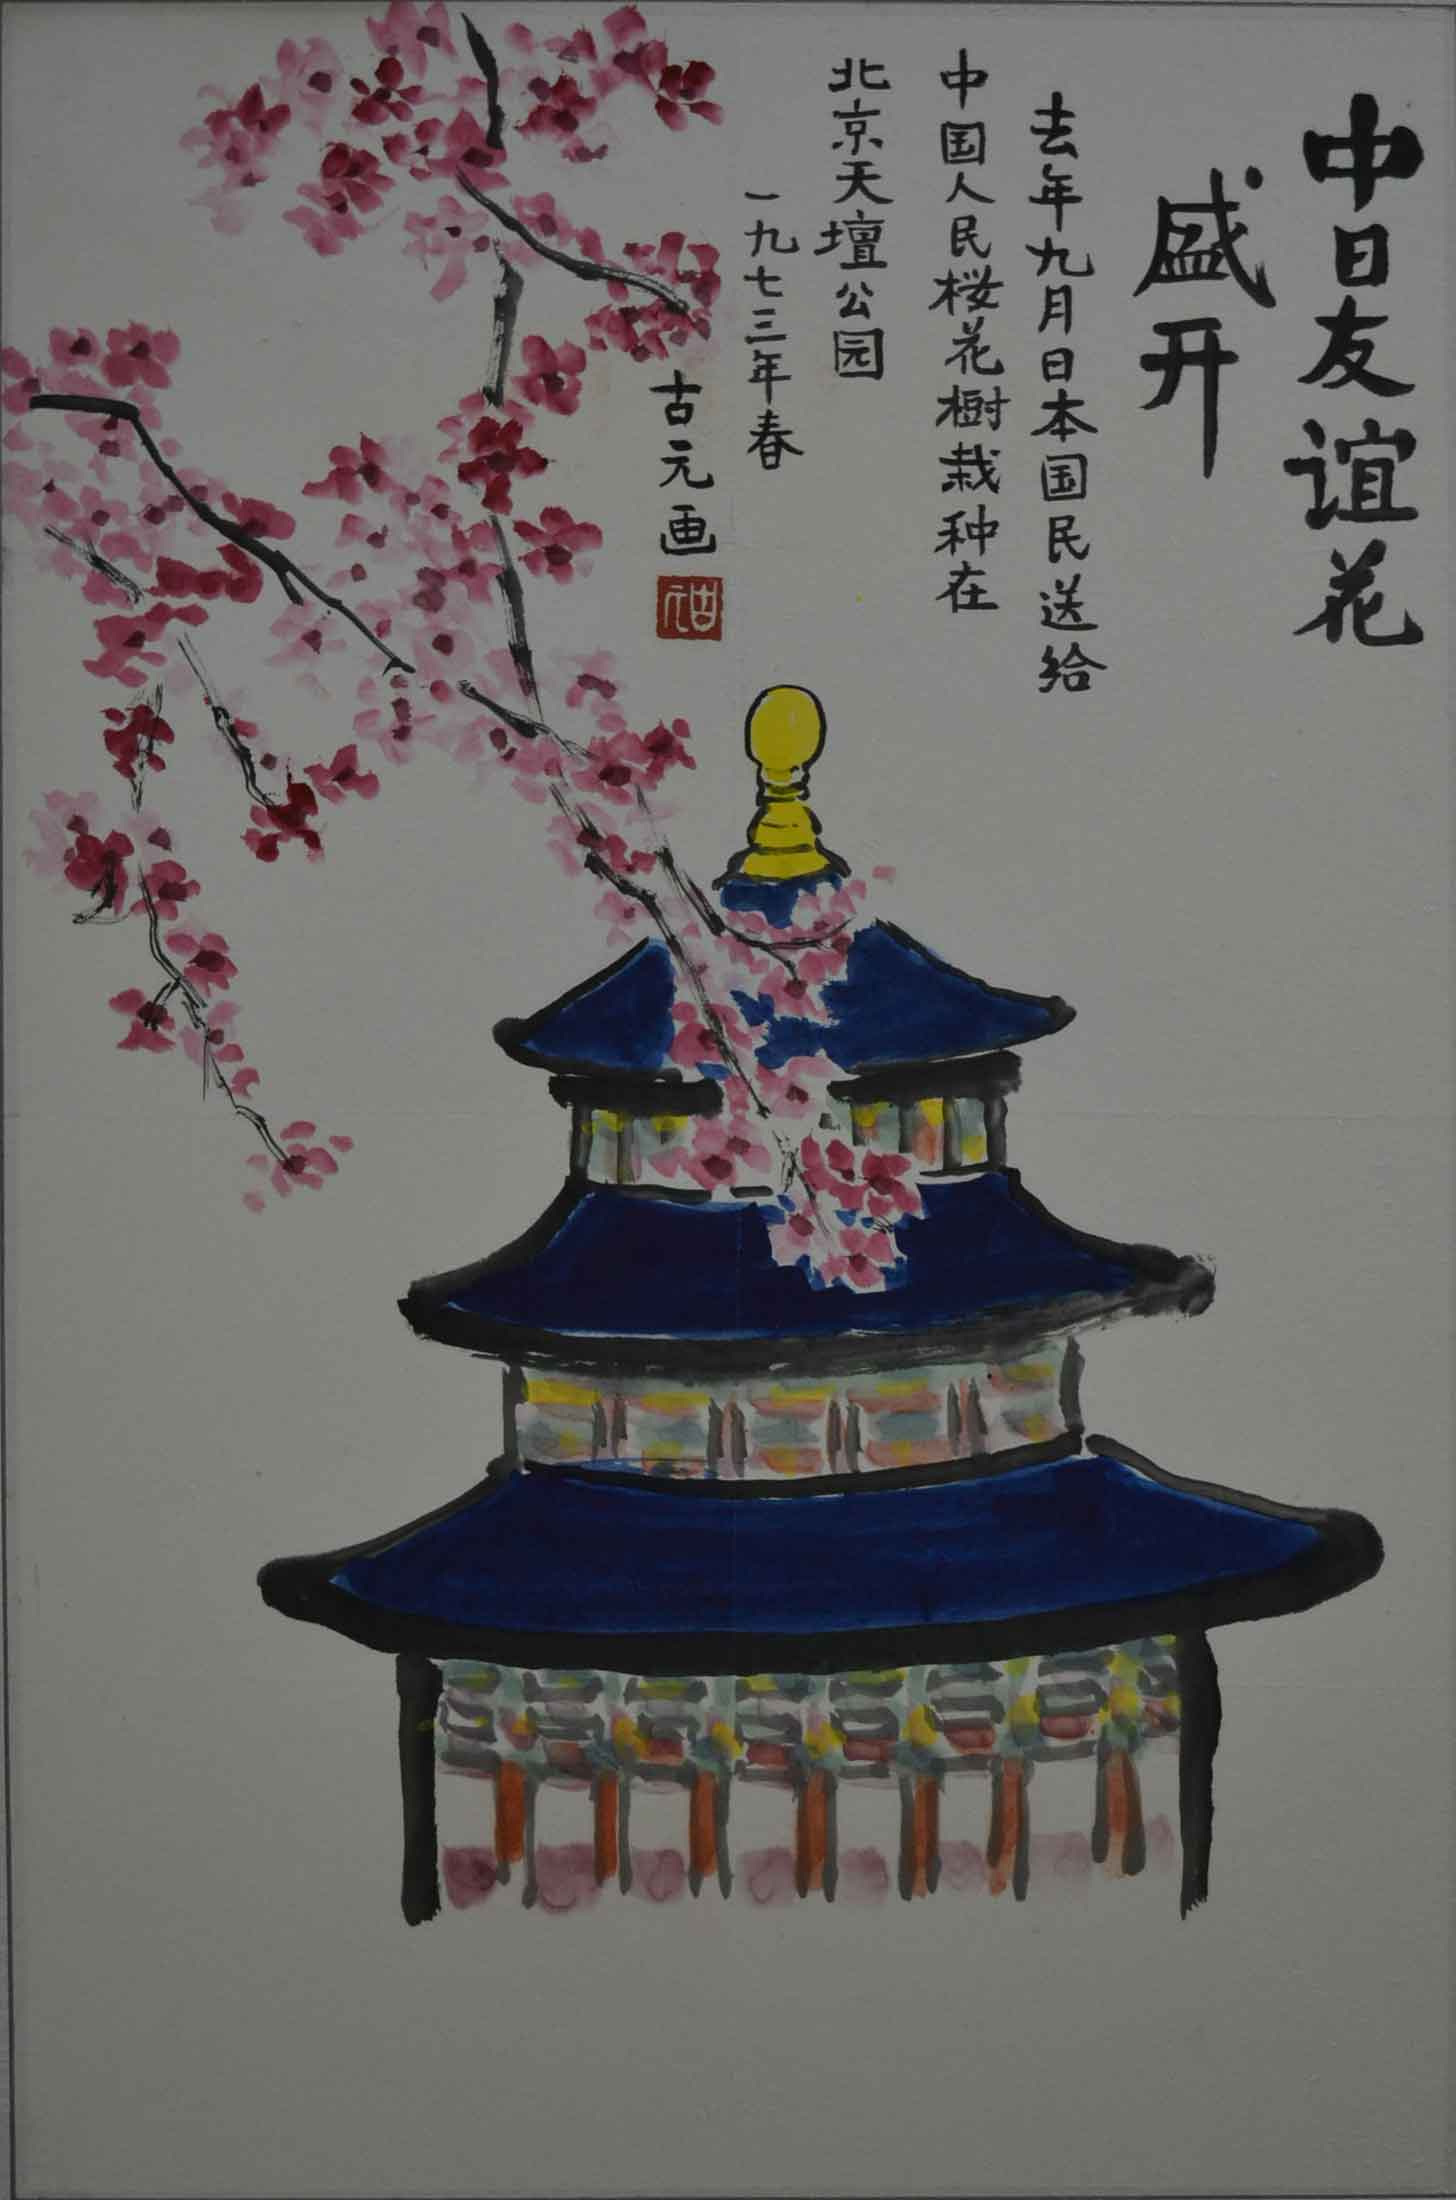 中日友谊花
盛开
去年九月日本国民送给
中国人民桜花樹栽种在
北京天壇公园
一九七三年春
古元画
古元